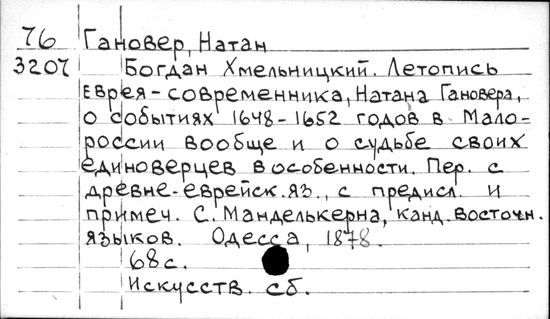 76 Гановер, Натан
3207 Богдан Хмельницкий. Летопись
еврея-современника, Натана Гановера,
о событиях 1648-1652 годов в Мало-
россии вообще и о судьбе своих
единоверцев в особенности. Пер. с
древне-еврейск. яз., с предисл. и
примеч. С. Манделькерна, канд. восточн.
языков. Одесса, 1878.
68 с.
Искусств. сб.